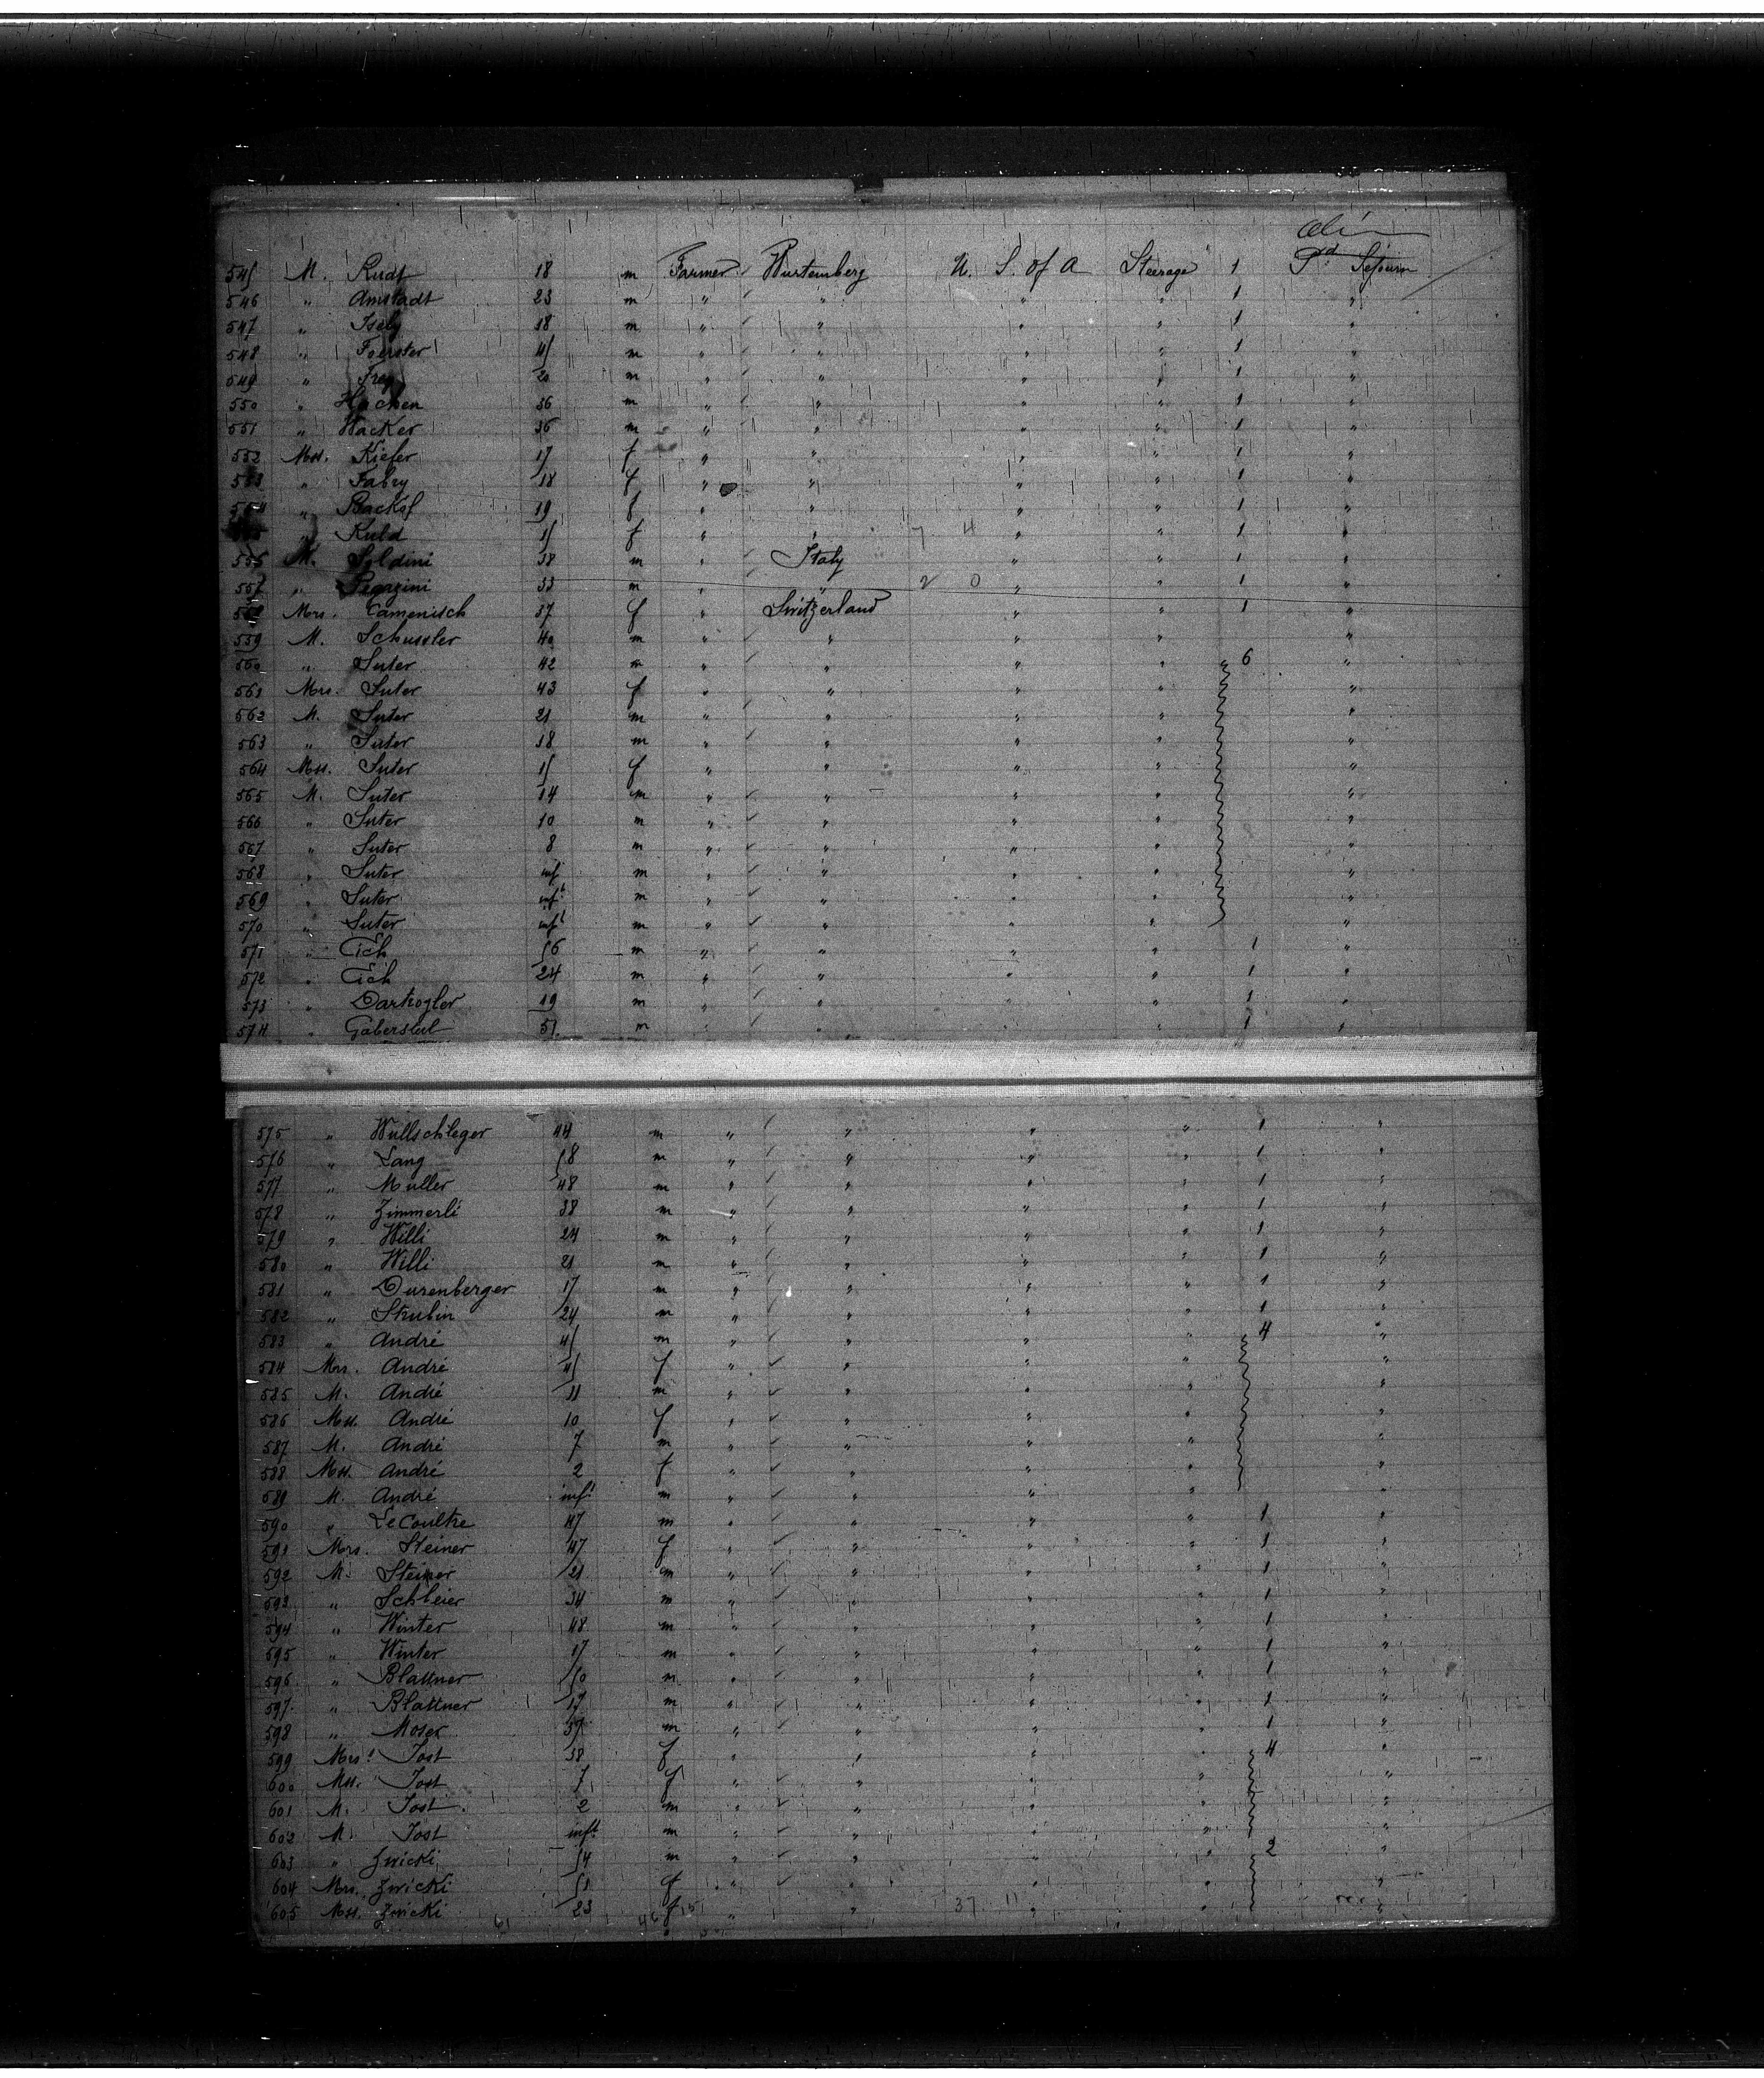 alien
545 M. Rudt 18 m Farmer Wurtemberg U. S. of A Steerage 1 Pd Sejourn
546 " Amstadt 23 m " " " " 1 "
547 " Isely 38 m " " " " 1 "
548 " Foerster 45 m " " " " 1 "
549 " Frey 20 m " " " " 1 "
550 " Hochen 36 m " " " " 1 "
551 " Wacker 36 m " " " " 1 "
552 Mss. Kiefer 17 f " " " " 1 "
553 " Fabry 18 f " " " " 1 "
554 " 19 f " " " " 1 "
555 " Kuld 15 f " " 7 4 " " 1 "
556 M. Soldini 38 m " Italy " " 1 "
557 " 33 m " " 2 0 " " 1 "
558 Mrs. Camenisch 37 f " Switzerland " " 1 "
559 M. Schussler 40 m " " " " "
560 " Suter 42 m " " " " 6 "
561 Mrs. Suter 43 f " " " " "
562 M. Suter 21 m " " " " "
563 " Suter 18 m " " " " "
564 Mss. Suter 15 f " " " " "
565 M. Suter 14 m " " " " "
566 " Suter 10 m " " " " "
567 " Suter 8 m " " " " "
568 " Suter inf m " " " " "
569 " Suter inft m " " " " "
570 " Suter inft m " " " " "
571 " Eich 56 m " " " " 1 "
572 " Eich 24 m " " " " 1 "
573 " 19 m " " " " 1 "
574 " 51 m " " " 1 "
575 " Wullschleger 44 m " " " " 1 "
576 " Lang 58 m " " " " 1 "
577 " Muller 48 m " " " " 1 "
578 " Zimmerli 38 m " " " " 1 "
579 " Willi 24 m " " " " 1 "
580 " Willi 21 m " " " " 1 "
581 " Durenberger 17 m " " " " 1 "
582 " Strubin 24 m " " " " 1 "
583 " André 45 m " " " " 4 "
584 Mrs. André 45 f " " " " "
585 M. André 11 m " " " " "
586 Mss. André 10 f " " " " "
587 M. André 7 m " " " " "
588 Mss. André 2 f " " " " "
589 M. André inft m " " " " "
590 " LeCoultre 47 m " " " " 1 "
591 Mrs. Steiner 47 f " " " " 1 "
592 M. Steiner 21 m " " " " 1 "
593 " Schleier 34 m " " " " 1 "
594 " Winter 48 m " " " " 1 "
595 " Winter 17 m " " " " 1 "
596 " Blattner 50 m " " " " 1 "
597 " Blattner 17 m " " " " 1 "
598 " Moser 37 m " " " " 1 "
599 Mrs. Jost 38 f " " " " 4 "
600 Mss. Jost 7 f " " " " "
601 M. Jost 2 m " " " " "
602 M. Jost inft m " " " " "
603 " Zwicki 54 m " " " " 2 "
604 Mrs. Zwicki 51 f " " " " "
605 Mss. Zwicki 23 f " " 37 11 " " "
61 46 15